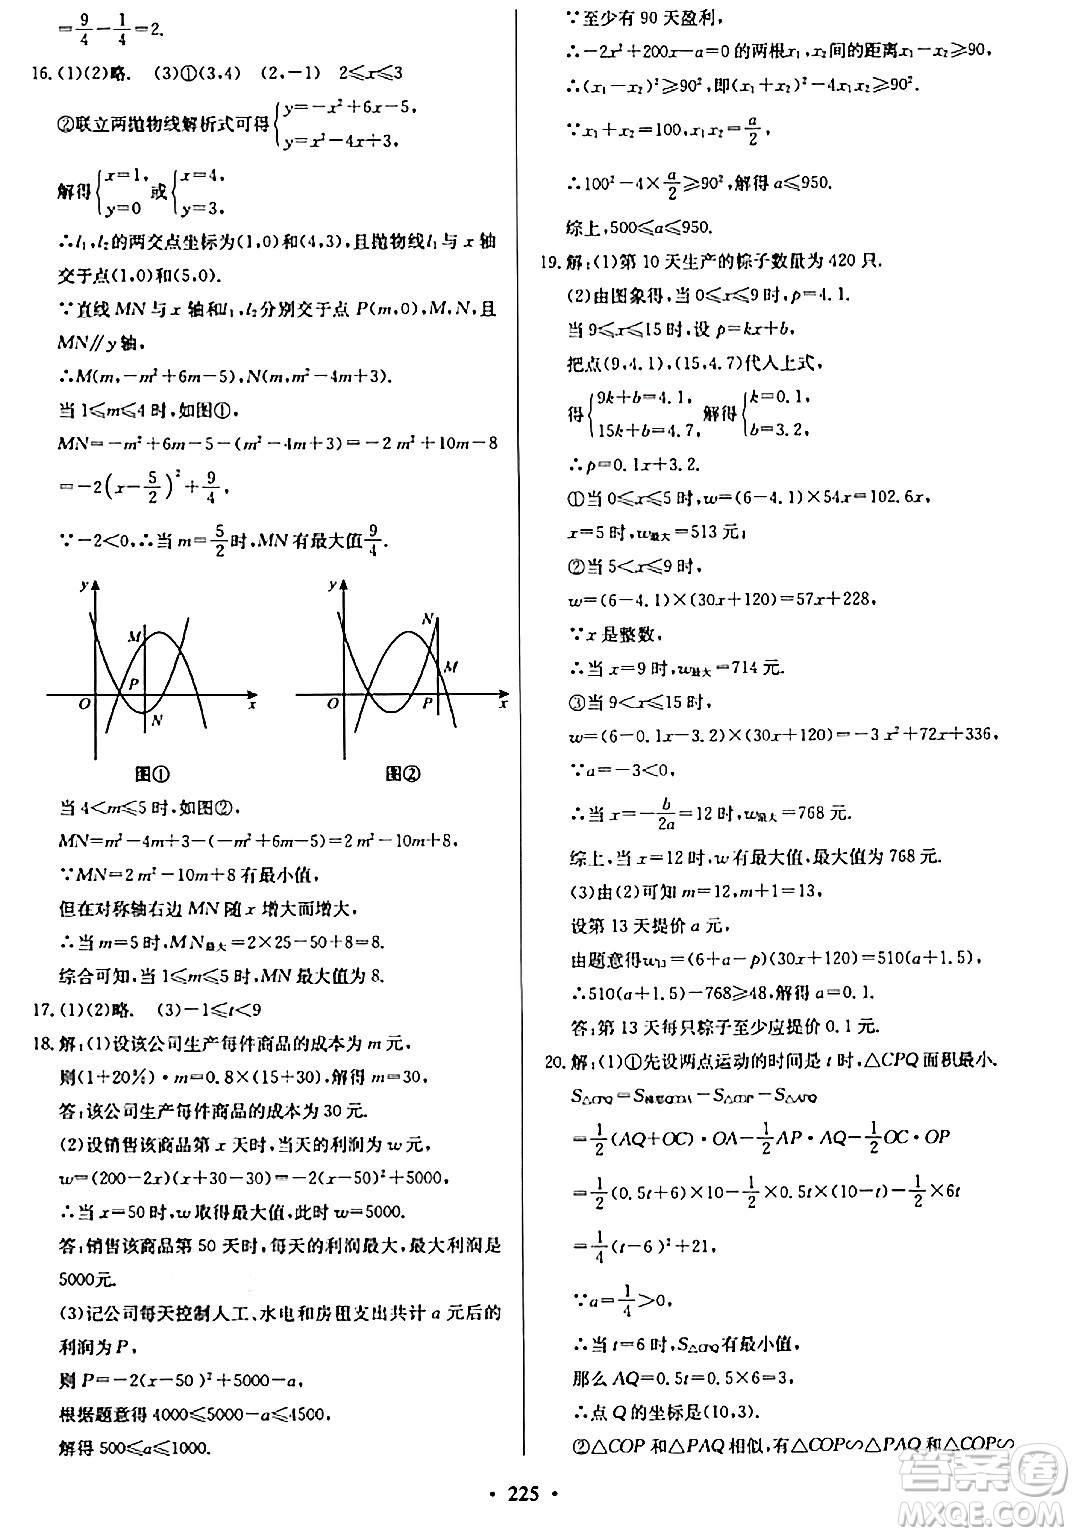 =9/4-1/4=2.
16.(1)(2)略. (3)①(3,4) (2,-1) 2≤x≤3
②联立两抛物线解析式可得{y=-x²+6x-5, y=x²-4x+3,
解得{x=1, y=0 或{x=4, y=3,
∴l₁,l₂的两交点坐标为(1,0)和(4,3),且抛物线l₁与x轴
交于点(1,0)和(5,0).
∵直线MN与x轴和l₁,l₂分别交于点P(m,0),且
MN∥y轴,
∴M(m,-m²+6m-5),N(m,m²-4m+3).
当1≤m≤4时,如图①,
MN=-m²+6m-5-(m²-4m+3)=-2m²+10m-8
=-2(x-5/2)²+9/4,
∵-2<0,∴当m=5/2时,MN有最大值9/4.
y M P O N x
图①
y N M O P x
图②
当4<m≤5时,如图②,
MN=m²-4m+3-(-m²+6m-5)=2m²-10m+8,
∵MN=2m²-10m+8有最小值,
但在对称轴右边MN随x增大而增大,
∴当m=5时,MN最大=2×25-50+8=8.
综合可知,当1≤m≤5时,MN最大值为8.
17.(1)(2)略. (3)-1≤t<9
18.解:(1)设该公司生产每件商品的成本为m元,
则(1+20%)·m=0.8×(15+30),解得m=30,
答:该公司生产每件商品的成本为30元.
(2)设销售该商品第x天时,当天的利润为w元,
w=(200-2x)(x+30-30)=-2(x-50)²+5000,
∴当x=50时,w取得最大值,此时w=5000.
答:销售该商品第50天时,每天的利润最大,最大利润是
5000元.
(3)记公司每天控制人工、水电和房租支出共计a元后的
利润为P,
则P=-2(x-50)²+5000-a,
根据题意得4000≤5000-a≤4500,
解得500≤a≤1000.
∵至少有90天盈利,
∴-2x²+200x-a=0的两根x₁,x₂间的距离x₁-x₂≥90,
∴(x₁-x₂)²≥90²,即(x₁+x₂)²-4x₁x₂≥90²,
∵x₁+x₂=100,x₁x₂=a/2,
∴100²-4×a/2≥90²,解得a≤950.
综上,500≤a≤950.
19.解:(1)第10天生产的粽子数量为420只.
(2)由图象得,当0≤x≤9时,p=4.1.
当9≤x≤15时,设p=kx+b,
把点(9,4.1),(15,4.7)代入上式,
得{9k+b=4.1, 15k+b=4.7, 解得{k=0.1, b=3.2,
∴p=0.1x+3.2.
①当0≤x≤5时,w=(6-4.1)×54x=102.6x,
x=5时,w最大=513元;
②当5<x≤9时,
w=(6-4.1)×(30x+120)=57x+228,
∵x是整数,
∴当x=9时,w最大=714元.
③当9≤x≤15时,
w=(6-0.1x-3.2)×(30x+120)=-3x²+72x+336,
∵a=-3<0,
∴当x=-b/2a=12时,w最大=768元.
综上,当x=12时,w有最大值,最大值为768元.
(3)由(2)可知m=12,m+1=13,
设第13天提价a元,
由题意得w₁₃=(6+a-p)(30x+120)=510(a+1.5),
∴510(a+1.5)-768≥48,解得a=0.1.
答:第13天每只粽子至少应提价0.1元.
20.解:(1)①先设两点运动的时间是t时,△CPQ面积最小.
S△CPQ=S梯形QCOA-S△COP-S△APQ
=1/2(AQ+OC)·OA-1/2AP·AQ-1/2OC·OP
=1/2(0.5t+6)×10-1/2×0.5t×(10-t)-1/2×6t
=1/4(t-6)²+21,
∵a=1/4>0,
∴当t=6时,S△CPQ有最小值,
那么AQ=0.5t=3,
∴点Q的坐标是(10,3).
②△COP和△PAQ相似,有△COP∽△PAQ和△COP∽
·225·
答案圈
MXQE.COM